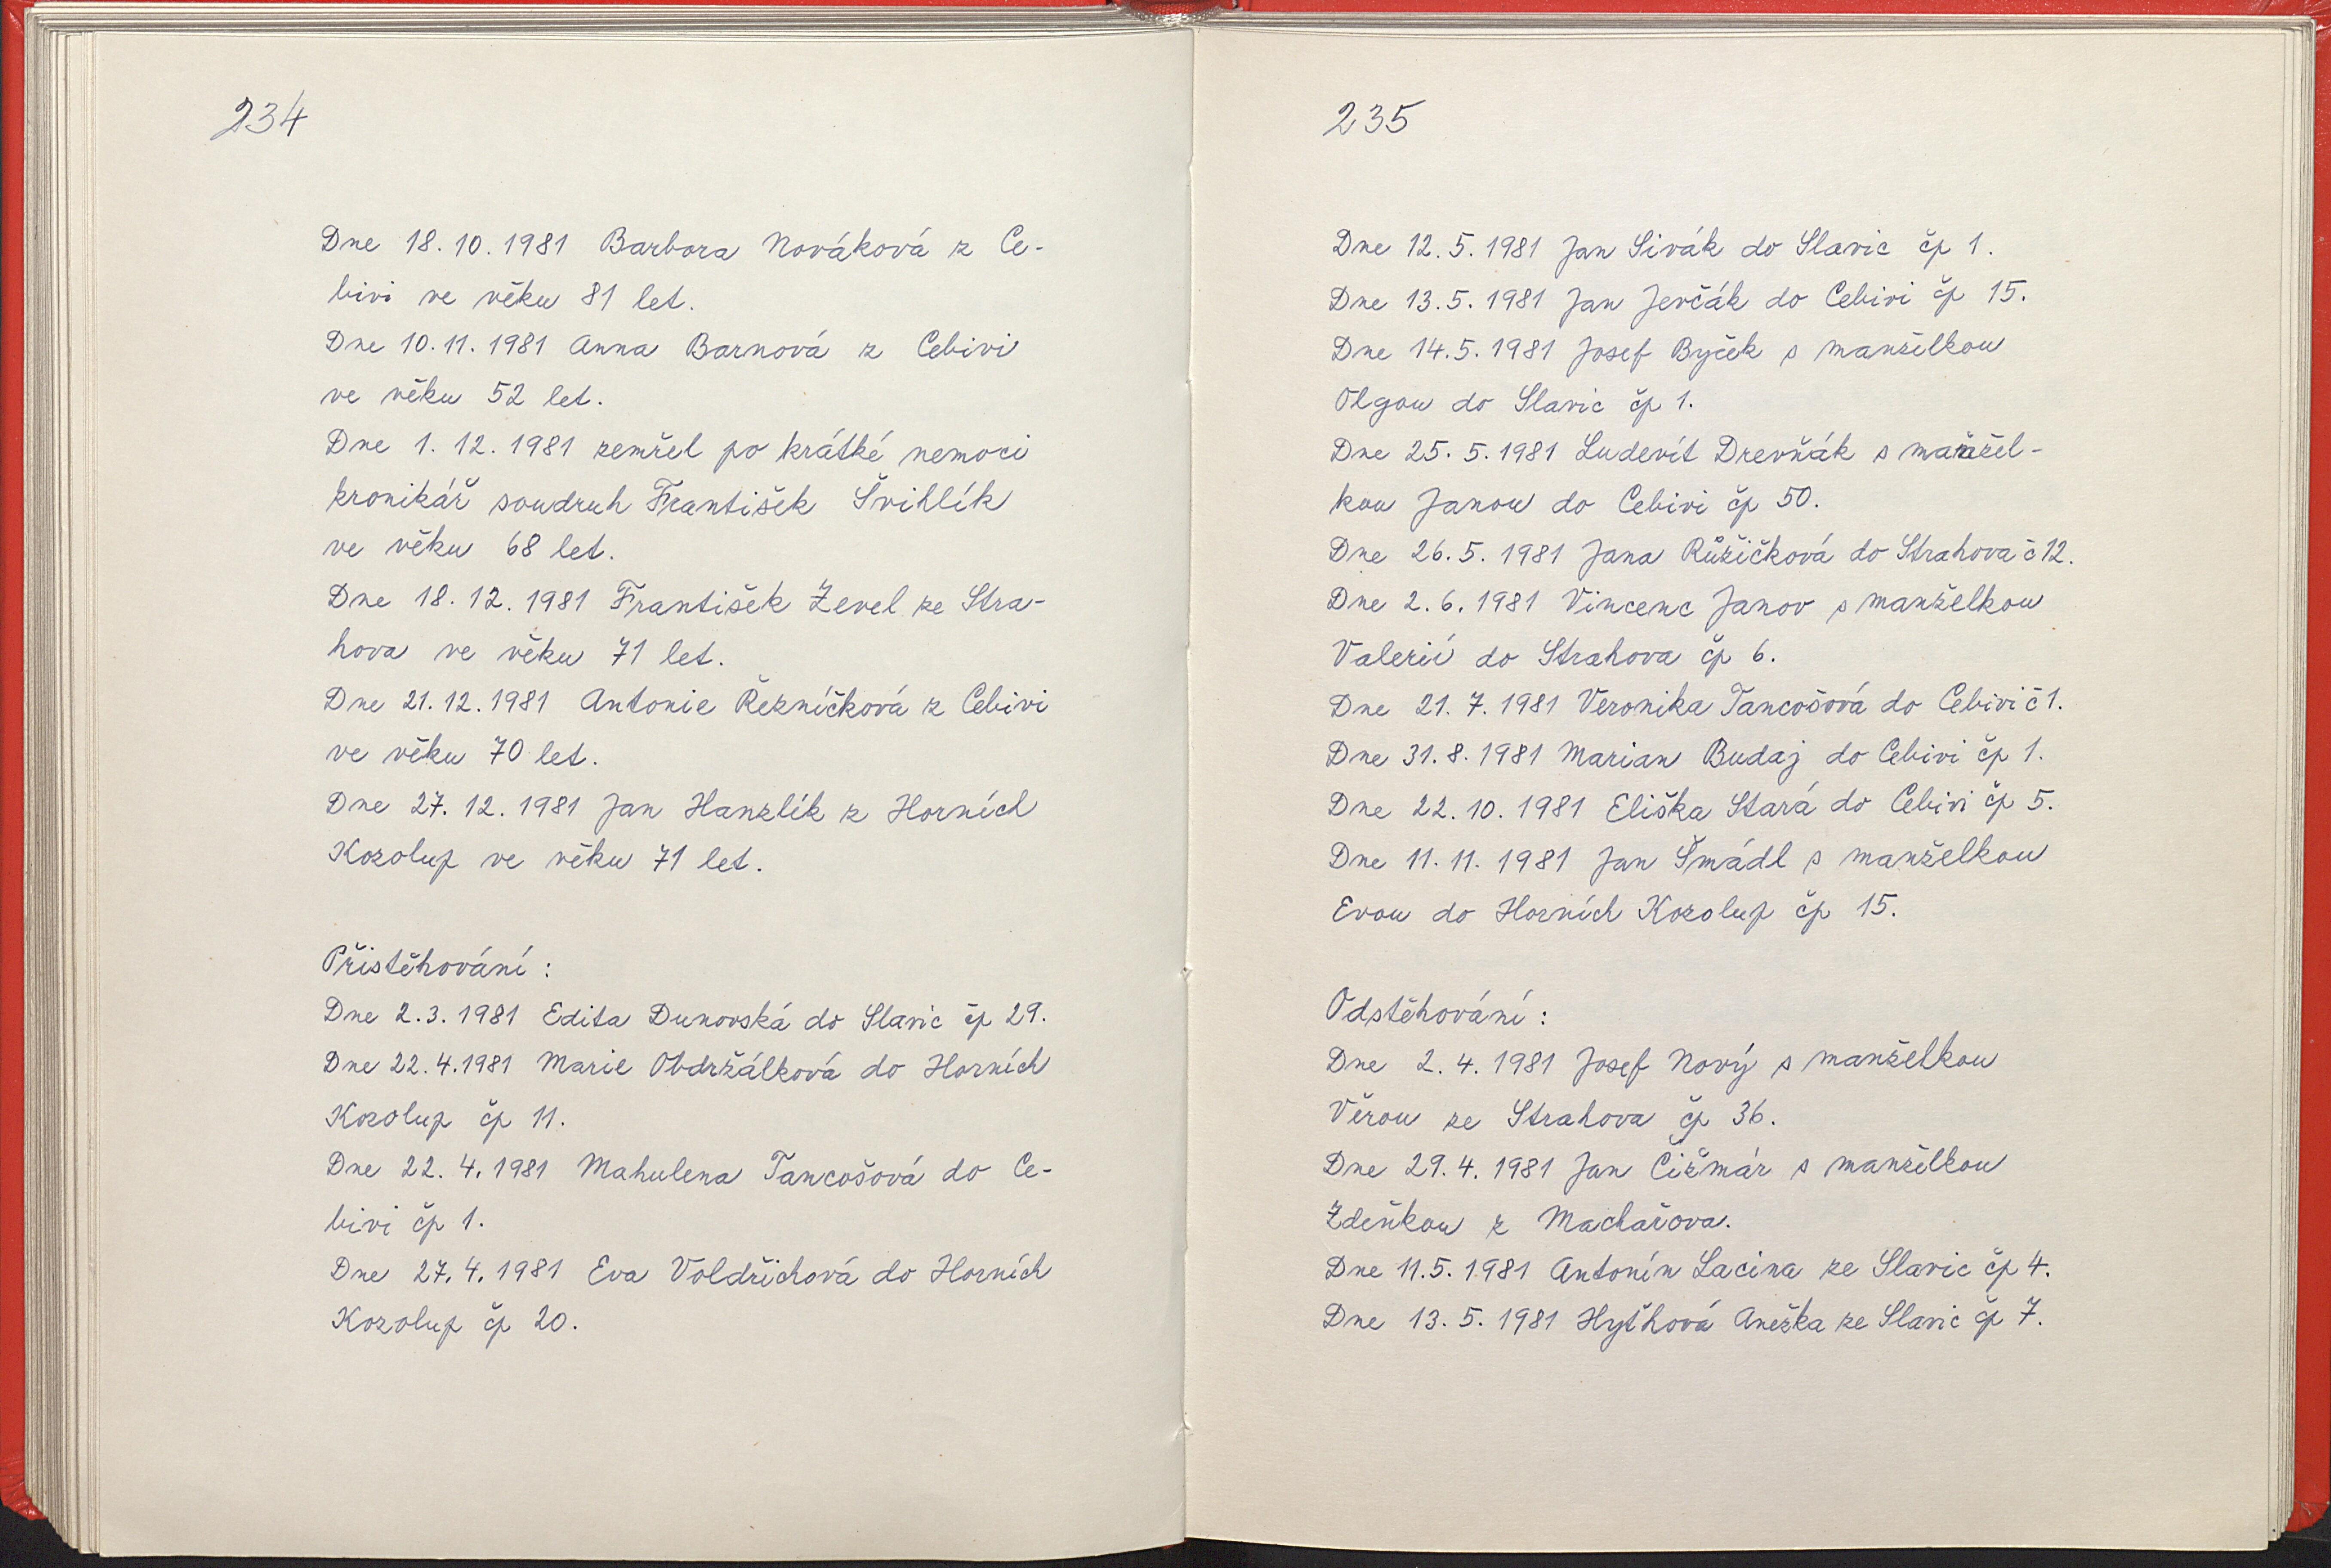 234
Dne 18.10.1981 Barbora Nováková z Ce-
bivi ve věku 81 let.
Dne 10.11.1981 Anna Barnová z Cebivi
ve věku 52 let.
Dne 1.12.1981 zemřel po krátké nemoci
kronikář soudruh František Švihlík
ve věku 68 let.
Dne 18.12.1981 František Zevel ze Stra-
hova ve věku 71 let.
Dne 21.12.1981 Antonie Řezníčková z Cebivi
ve věku 70 let.
Dne 27.12.1981 Jan Hanzlík z Horních
Kozolup ve věku 71 let.
Přistěhování:
Dne 2.3.1981 Edita Dunovská do Slavic čp 29.
Dne 22.4.1981 Marie Obdržálková do Horních
Kozolup čp 11.
Dne 22.4.1981 Mahulena Tancošová do Ce-
bivi čp 1.
Dne 27.4.1981 Eva Voldřichová do Horních
Kozolup čp 20.
235
Dne 12.5.1981 Jan Sivák do Slavic čp 1.
Dne 13.5.1981 Jan Jevčák do Cebivi čp 15.
Dne 14.5.1981 Josef Byček s manželkou
Olgou do Slavic čp 1.
Dne 25.5.1981 Ludevít Drevňák s manžel-
kou Janou do Cebivi čp 50.
Dne 26.5.1981 Jana Růžičková do Strahova č 12.
Dne 2.6.1981 Vincenc Janov s manželkou
Valerií do Strahova čp 6.
Dne 21.7.1981 Veronika Tancošová do Cebivi č 1.
Dne 31.8.1981 Marian Budaj do Cebivi čp 1.
Dne 22.10.1981 Eliška Stará do Cebivi čp 5.
Dne 11.11.1981 Jan Šmádl s manželkou
Evou do Horních Kozolup čp 15.
Odstěhování:
Dne 2.4.1981 Josef Nový s manželkou
Věrou ze Strahova čp 36.
Dne 29.4.1981 Jan Čižmár s manželkou
Zdeňkou z Machařova.
Dne 11.5.1981 Antonín Lacina ze Slavic čp 4.
Dne 13.5.1981 Hyťhová Anežka ze Slavic čp 7.